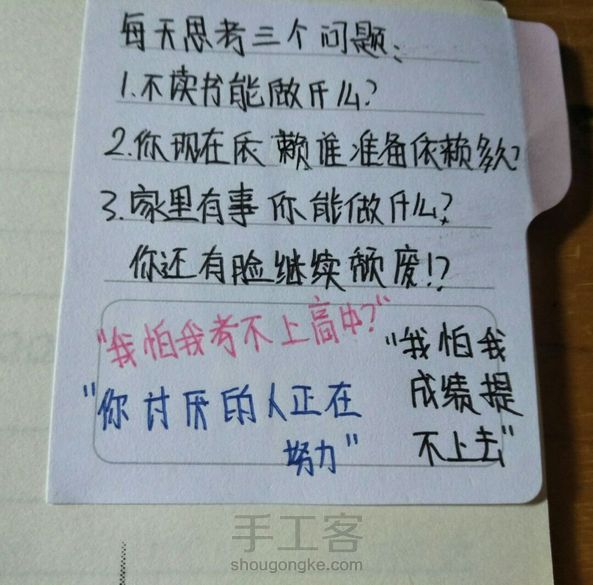 每天思考三个问题:
1.不读书能做什么?
2.你现在依赖谁准备依赖多久?
3.家里有事你能做什么?
你还有脸继续颓废!?
"我怕我考不上高中?"
"你讨厌的人正在
努力"
"我怕我
成绩提
不上去"
手工客
shougongke.com